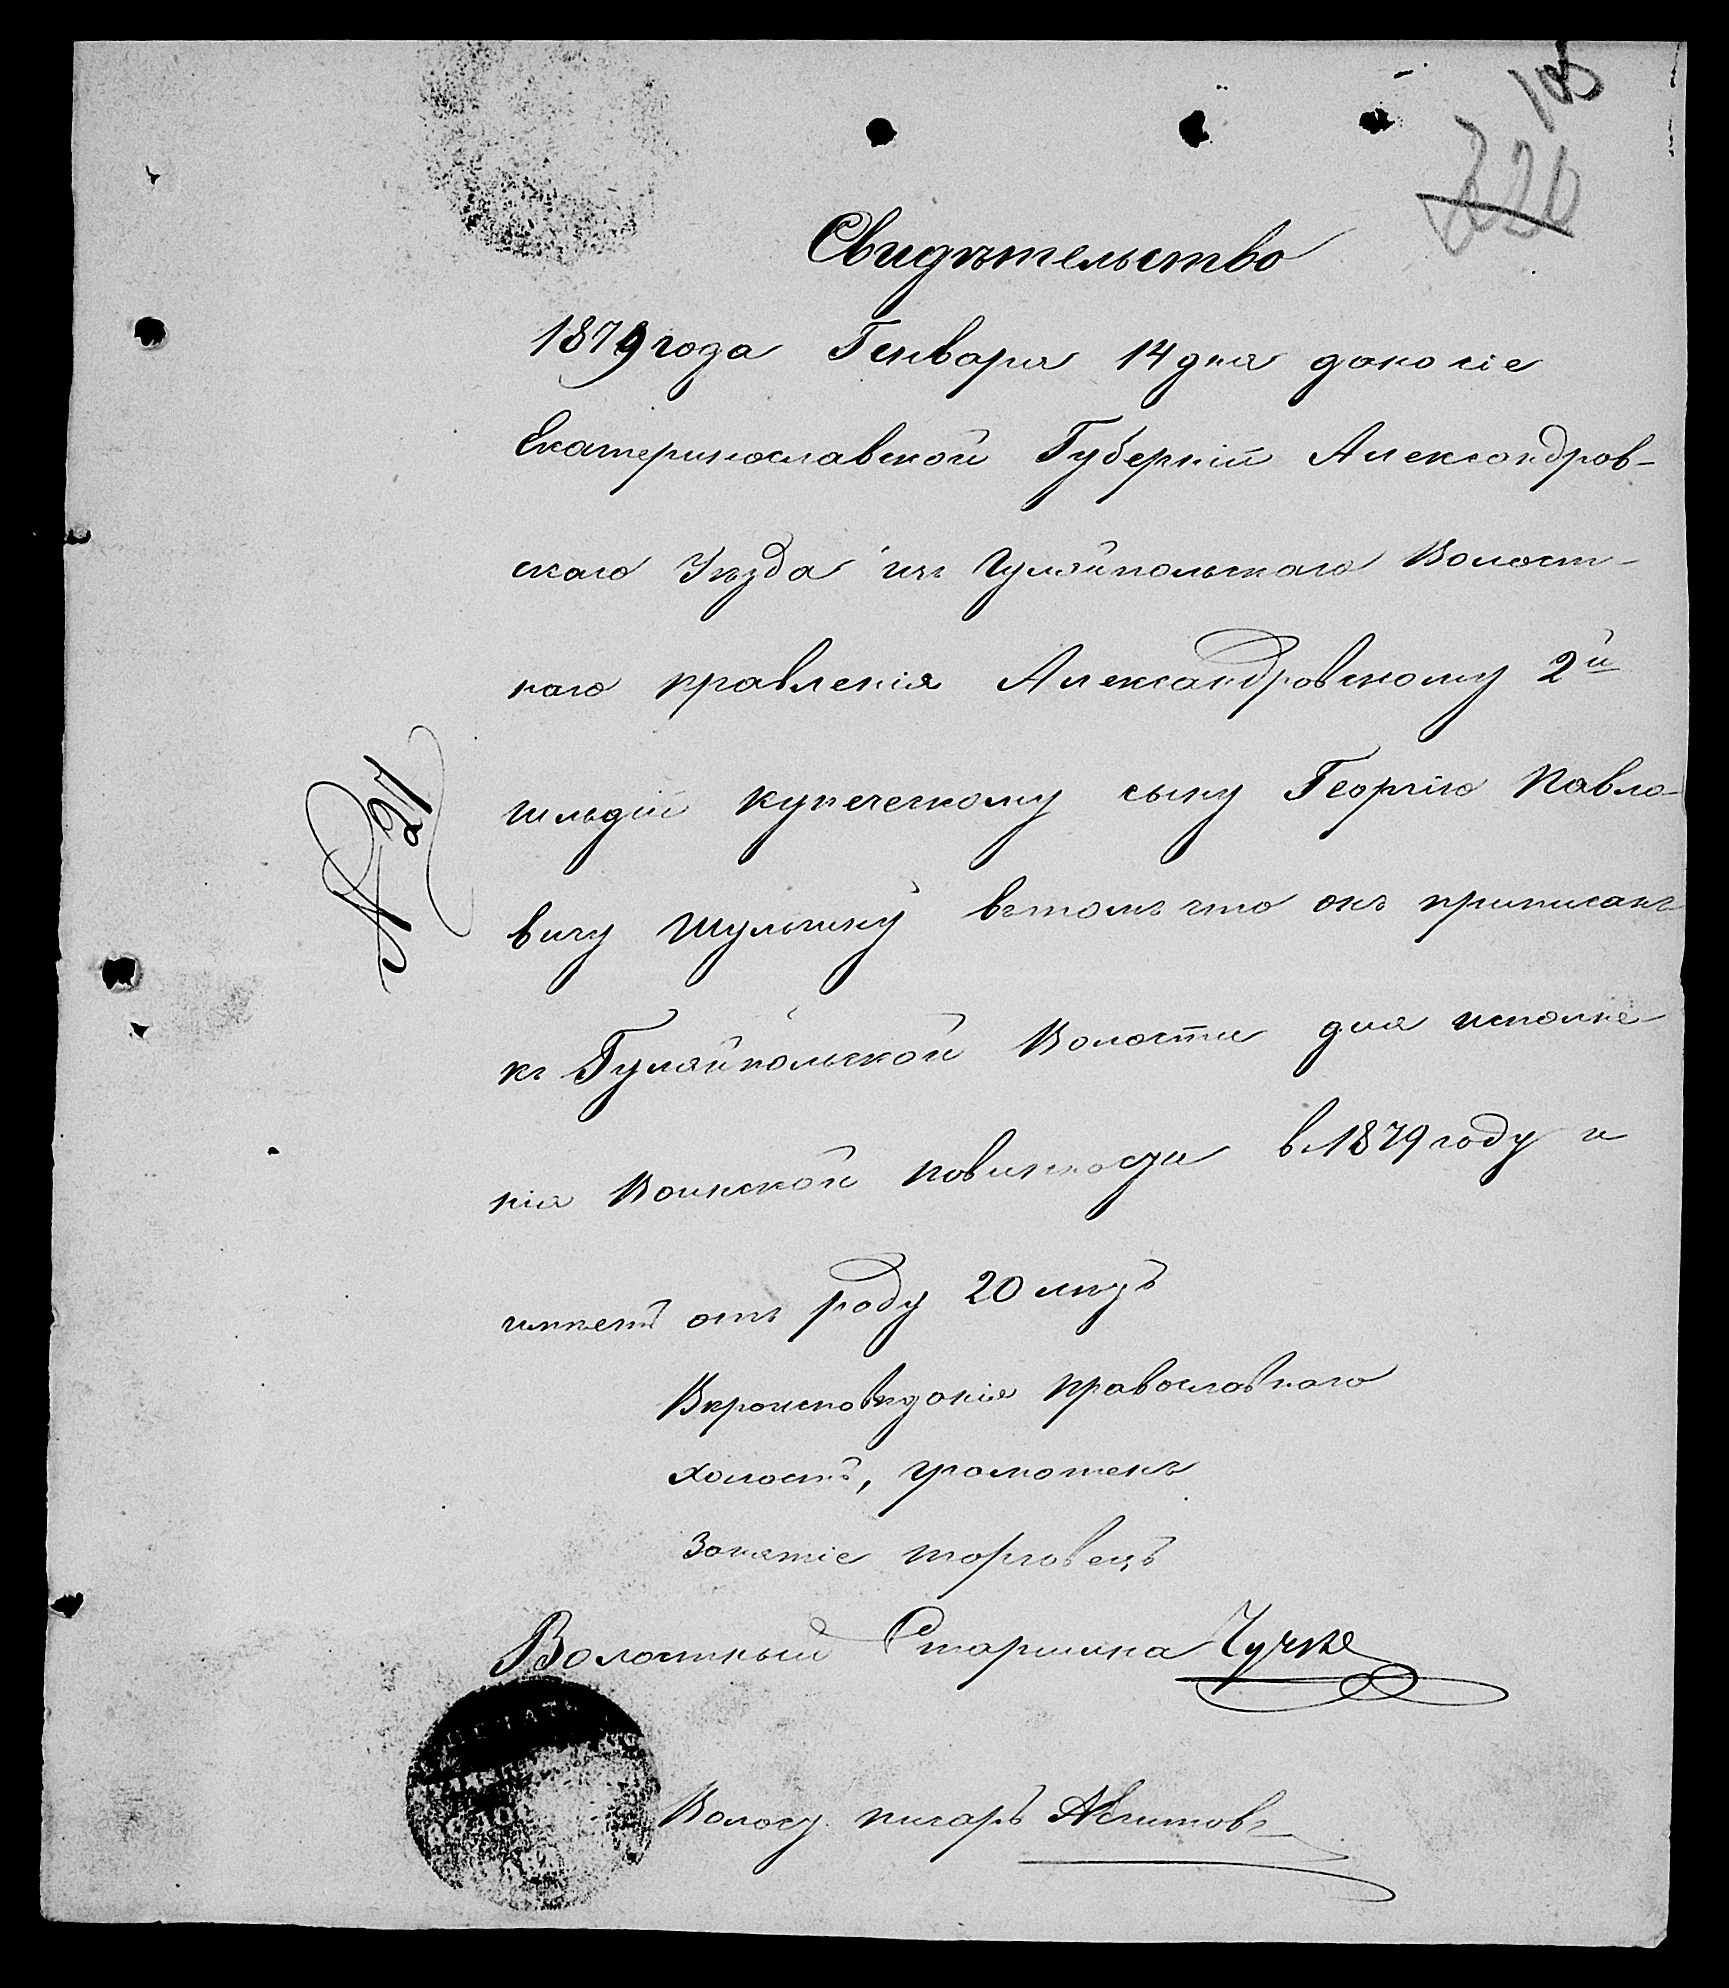 105
220
Свидѣтельство
1879 года Генваря 14 дня дано сіе
Екатеринославской Губерніи Александров-
скаго Уѣзда изъ Гуляйпольскаго Волост-
наго правленія Александровскому 2й
гильдіи купеческому сыну Георгію Павло-
вичу Шульгину вътомъ что онъ приписанъ
къ Гуляйпольской Волости для исполне
нія Воинской повинности в 1879 году и
имѣетъ отъ роду 20 лѣтъ
Вѣроисповѣданія православнаго
холостъ, грамотенъ
Занятіе торговецъ
Волостный Старшина
Волост. писарь
№ 27